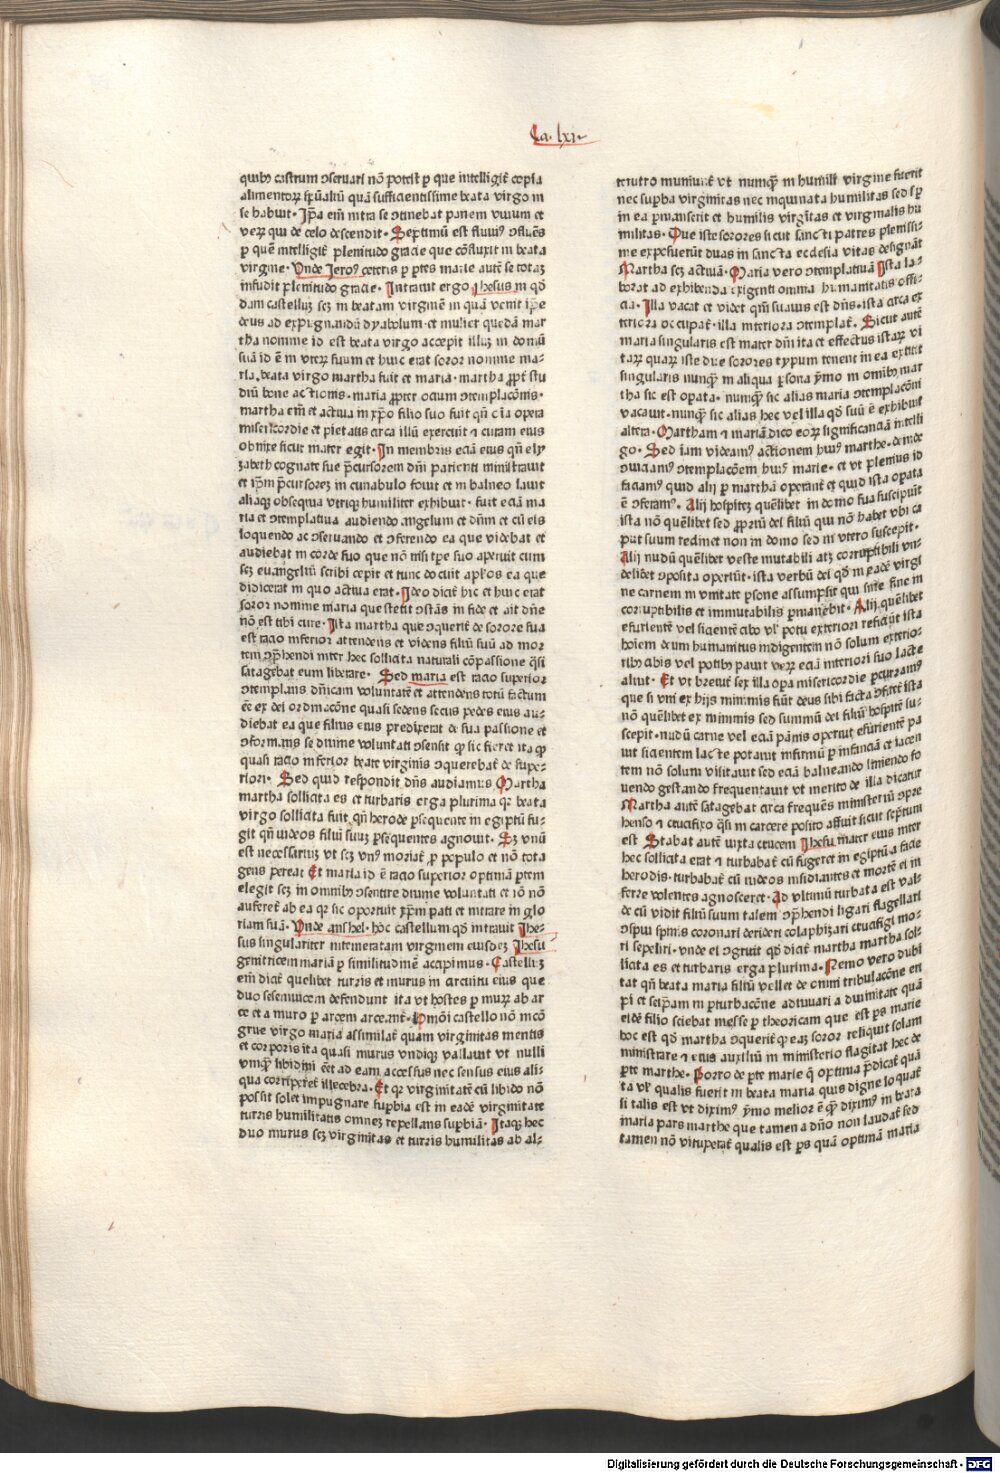 Ca. lxi
quibꝫ castrum ↄseruari nō potest ꝑ que intelligit̄ copia
alimentoꝝ sp̄ualiū quā sufficientissime beata virgo in
se habuit. Ip̄a em̄ intra se ↄtinebat panem viuum et
veꝝ qui de celo descendit. Septimū est fluuiꝰ ↄfluēs
ꝑ quē intelligit̄ plenitudo gracie que cōfluxit in beata
virgine. Vnde Jeroꝰ ceteris ꝑ ꝑtes marie autē se totaꝫ
infudit plenitudo gracie. Intrauit ergo Jhesus in qd̄
dam castellūꝫ scꝫ in beatam virginē in quā venit ip̄e
deus ad expugnandū dyabolum. et mulier quedā mar
tha nomine id est beata virgo accepit illūꝫ in domū
suā id ē in vteꝝ suum et huic erat soror nomine ma-
ria. beata virgo martha fuit et maria. martha ꝓpt̄ stu
diū bone actionis. maria ꝓpter ocium ↄtemplacōnis.
martha em̄ et actiua in xp̄o filio suo fuit qn̄ cūcta opera
misericordie et pietatis circa illū exercuit ⁊ curam eius
obnixe sicut mater egit. In membris eciā eius qn̄ ely
zabeth cognate sue p̄cursorem dn̄i parienti ministrauit
et ip̄m p̄cursoreꝫ in cunabulo fouit et in balneo lauit
aliaqꝫ obsequia vtriqꝫ humiliter exhibuit. fuit eciā ma
ria et ↄtemplatiua audiendo angelum et dn̄m et cū eis
loquendo ac ↄseruando et ↄferendo ea que videbat et
audiebat in corde suo que nō nisi tp̄e suo aperuit cum
scꝫ euangeliū scribi cepit et tunc docuit ap̄los ea que
didicerat in quo actiua erat. Ideo dicat̄ hic et huic erat
soror nomine maria que stetit ↄstās in fide et ait dn̄e
nō est tibi cure. Ista martha que ↄquerit̄ de sorore sua
est racio inferior attendens et videns filiū suū ad mor
tem ↄp̄hendi inter hec sollicita naturali cōpassione q̄si
satagebat eum liberare. Sed maria est racio superior
ↄtemplans dn̄icam voluntatē et attendens totū factum
eē ex dei ordinacōne quasi sedens secus pedes eius au-
diebat ea que filius eius predixerat de sua passione et
ↄformans se diuine voluntati ↄsensit qꝙ sic fieret ita qꝙ
quasi racio inferior beate virginis ↄquerebat̄ de supe-
riori. Sed quid respondit dn̄s audiamus Martha
martha sollicita es et turbaris erga plurima qꝛ beata
virgo sollicita fuit qn̄ herode ꝑsequente in egiptū fu-
git qn̄ iudeos filiū suuꝫ ꝑsequentes agnouit. Sꝫ vnū
est necessariuꝫ vt scꝫ vnꝰ moriat̄ ꝓ populo et nō tota
gens pereat Et maria id ē racio superior optimā ꝑtem
elegit scꝫ in omnibꝫ ↄsentire diuine voluntati et iō nō
auferet̄ ab ea qꝛ sic oportuit xp̄m pati et intrare in glo
riam suā. Vnde anshel. hoc castellum qd̄ intrauit Jhe-
sus singulariter intemeratam virginem eiusdeꝫ Jhesu
genitricem mariā ꝑ similitudinē accipimus. Castellūꝫ
em̄ dicit̄ quelibet turris et murus in circuitu eius que
duo sese inuicem defendunt ita vt hostes ꝑ muꝝ ab ar
ce et a muro ꝑ arcem arceant̄. Hmōi castello nō incō
grue virgo maria assimilat̄ quam virginitas mentis
et corporis ita quasi murus vndiqꝫ vallauit vt nulli
vnqꝫ libidini eēt ad eam accessus nec sensus eius ali
qua corriperet̄ illecebra. Et qꝛ virginitatē cū libido nō
possit solet impugnare supbia est in eadē virginitate
turris humilitatis omneꝫ repellans supbiā. Itaqꝫ hec
duo murus scꝫ virginitas et turris humilitas ab al-
terutro muniunt̄ vt numqꝫ in humili virgine fuerit
nec supba virginitas nec inquinata humilitas sed sꝑ
in ea ꝑmanserit et humilis virgītas et virginalis hu
militas. Que iste sorores sicut sancti patres plenissi
me exposuerūt duas in sancta ecclesia vitas designāt
Martha scꝫ actiuā. Maria vero ↄtemplatiuā Ista la-
borat ad exhibenda exigenti omnia humanitatis offi-
cia. Illa vacat et videt qm̄ suauis est dn̄s. ista circa ex
teriora occupat̄. illa interiora ↄtemplat̄. Sicut autē
maria singularis est mater dn̄i ita et effectus istaꝝ vi
taꝝ quaꝝ iste due sorores typum tenent in ea extitit
singularis nunqꝫ in aliqua ꝑsona ymo in omnibꝫ mar
tha sic est opata. numqꝫ sic alias maria ↄtemplacōni
vacauit. nunqꝫ sic alias hec vel illa qd̄ suū ē exhibuit
altera. Martham ⁊ mariā dico eoꝝ significanciā intelli
go. Sed iam videamꝰ actionem huiꝰ marthe. deinde
ↄuiciamꝰ ↄtemplacōem huiꝰ marie. et vt plenius id
faciamꝰ quid alij ꝑ marthā operant̄ et quid ista opata
ē ↄferamꝰ. Alij hospiteꝫ quēlibet in domo sua suscipiūt
ista nō quēlibet sed ꝓpriū dei filiū qui nō habet vbi ca
put suum reclinet non in domo sed in vtero suscepit.
Alij nudū quēlibet veste mutabili atqꝫ corruptibili vn-
delibet ↄposita operiūt. ista verbū dei qd̄ in eadē virgi
ne carnem in vnitate ꝑsone assumpsit qui sine fine in
corruptibilis et immutabilis ꝑmanebit. Alij quēlibet
esurientē vel sicientē cibo vl̓ potu exteriori reficiūt ista
hoīem deum humanitus indigentem nō solum exterio-
ribꝫ cibis vel potibꝫ pauit veꝝ eciā interiori suo lacte
aluit. Et vt breuit̄ sex illa opa misericordie ꝑcurramꝰ
que si vni ex hijs minimis fiūt deus sibi facta ↄfitet̄ ista
nō quēlibet ex minimis sed summū dei filiū hospitē su-
scepit. nudū carne vel eciā pānis operuit esurientē pa
uit sicientem lacte potauit infirmū ꝑ infanciā et iacen
tem nō solum visitauit sed eciā balneando liniendo fo
uendo gestando frequentauit vt merito de illa dicatur
Martha autē satagebat circa frequēs ministeriū ↄpre
henso ⁊ crucifixo q̄si in carcere posito affuit sicut sc̄ptum
est Stabat autē iuxta crucem Jhesu mater eius inter
hec sollicita erat ⁊ turbabat̄ cū fugeret in egiptū a facie
herodis. turbabat̄ cū iudeos insidiantes et mortē ei in
ferre volentes agnosceret. Ad vltimū turbata est val-
de cū vidit filiū suum talem ↄp̄hendi ligari flagellari
ↄspui spinis coronari derideri colaphizari crucifigi mo-
ri sepeliri. vnde ei ↄgruit qd̄ dicit̄ martha martha sol-
licita es et turbaris erga plurima. Nemo vero dubi
tat qn̄ beata maria filiū vellet de omni tribulacōne eri
pi et seip̄am in ꝑturbacōne adiuuari a diuinitate quā
eidē filio sciebat inesse ꝑ theoricam que est ꝑs marie
hoc est qd̄ martha ↄquerit̄ qꝙ eaꝫ soror reliquit solam
ministrare ⁊ eius auxiliū in ministerio flagitat hec de
ꝑte marthe. Porro de ꝑte marie q̄ optima p̄dicat̄ quā
ta vl̓ qualis fuerit in beata maria quis digne loquat̄
si talis est vt diximꝰ ymo melior ē qꝫ diximꝰ in beata
maria pars marthe que tamen a dn̄o non laudat̄ sed
tamen nō vituperat̄ qualis est ꝑs quā optimā maria
Digitalisierung gefördert durch die Deutsche Forschungsgemeinschaft - DFG